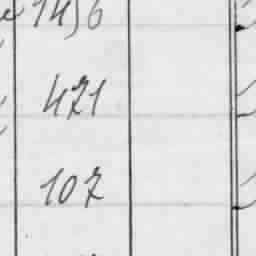 1456
471
107